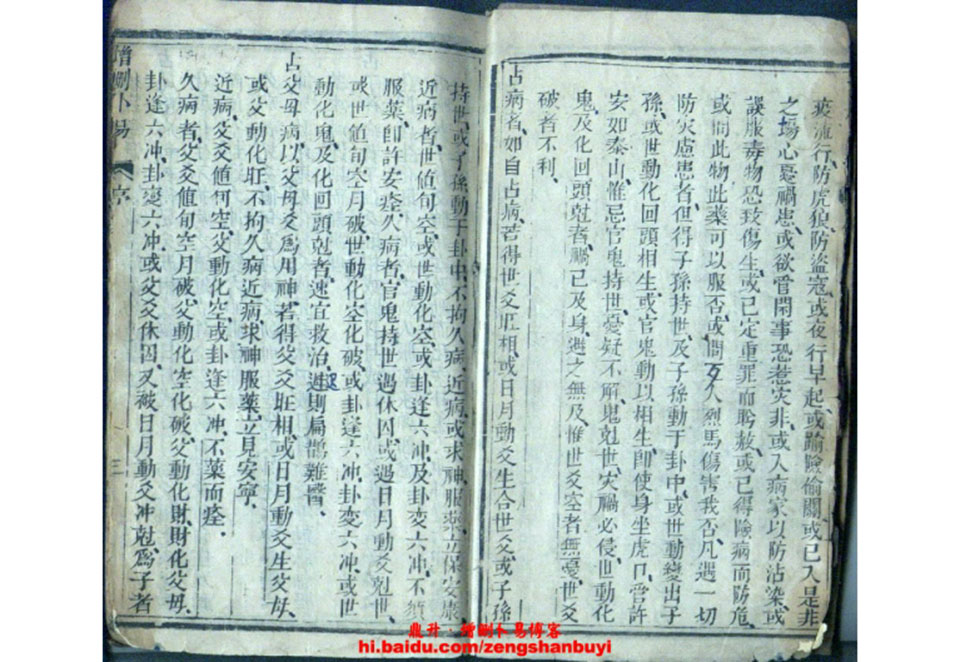 疾流行、防虎狼、防盜寇、或夜行早起、或踰險偷關、或已入是非
之場、心憂禍患、或欲管閑事、恐惹灾非、或入病家以防沾染、或
誤服毒物、恐致傷生、或已定重罪而盼赦、或已得險病而防危、
或問此物此藥可以服否、或問歹人烈馬傷害我否、凡遇一切
防灾慮患者、但得子孫持世、及子孫動于卦中、或世動變出子
孫、或世動化回頭相生、或官鬼動以相生、即使身坐虎口、管許
安如泰山、惟忌官鬼持世、憂疑不解、鬼尅世、灾禍必侵、世動化
鬼、及化回頭尅者、禍已及身、避之無及、惟世爻空者、無憂、世爻
破者不利、
占病者、如自占病、若得世爻旺相、或日月動爻生合世爻、或子孫
持世、或子孫動于卦中、不拘久病、近病、或求神、服藥、立保安康、
近病者、世值旬空、或世動化空、或卦逢六冲、及卦變六冲、不須
服藥、即許安痊、久病者、官鬼持世、遇休囚、或遇日月動爻尅世、
或世值旬空月破、世動化空化破、或卦逢六冲、卦變六冲、或世
動化鬼、及化回頭尅者、速宜救治、遲則扁鵲難醫、
占父母病、以父母爻爲用神、若得父爻旺相、或日月動爻生父母、
或父動化旺、不拘久病近病、求神服藥、立見安寧、
近病、父爻值旬空、父動化空、或卦逢六冲、不藥而痊、
久病者、父爻值旬空月破、父動化空化破、父動化財、財化父母、
卦逢六冲、卦變六冲、或父爻休囚、又被日月動爻冲尅、爲子者
增刪卜易
序
三
鼎升：增刪卜易博客
hi.baidu.com/zengshanbuyi